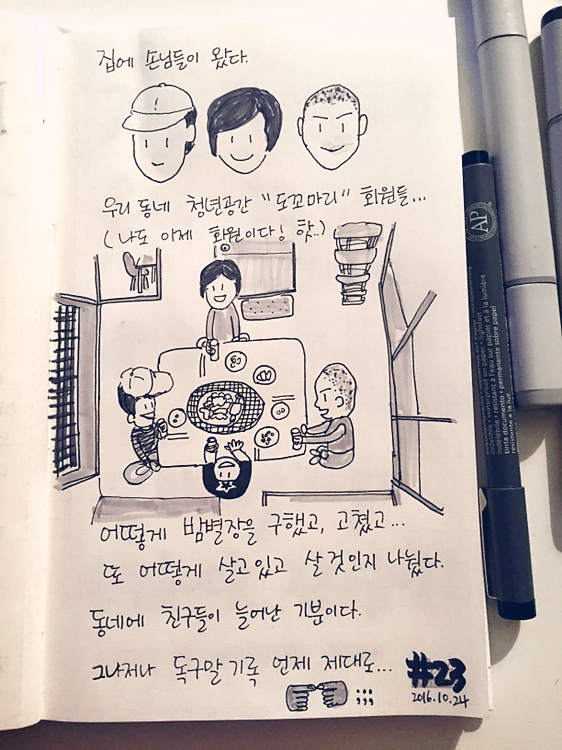 집에 손님들이 왔다.
우리 동네 청년공간 "도꼬마리" 회원들...
(나도 이제 회원이다! 핫..)
어떻게 밤별장을 구했고, 고쳤고...
또 어떻게 살고있고 살 것인지 나눴다.
동네에 친구들이 늘어난 기분이다.
그나저나 독구말 기록 언제 제대로...
;;;
#23
2016.10.24
AP